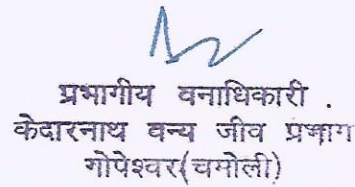 प्रभागीय वनाधिकारी .
केदारनाथ वन्य जीव प्रभाग
गोपेश्वर(चमोली)